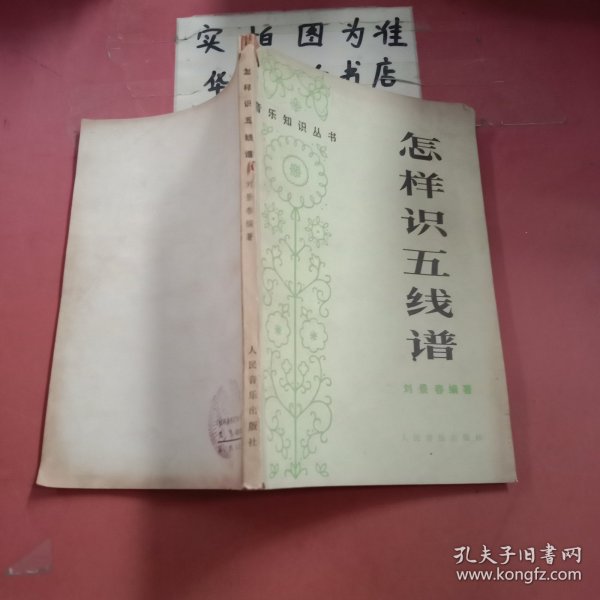 实拍图为准
华 书店
怎样识五线谱
刘景春编著
人民音乐出版社
音乐知识丛书
怎样识五线谱
刘景春编著
人民音乐出版社
孔夫子旧书网
www.kongfz.com